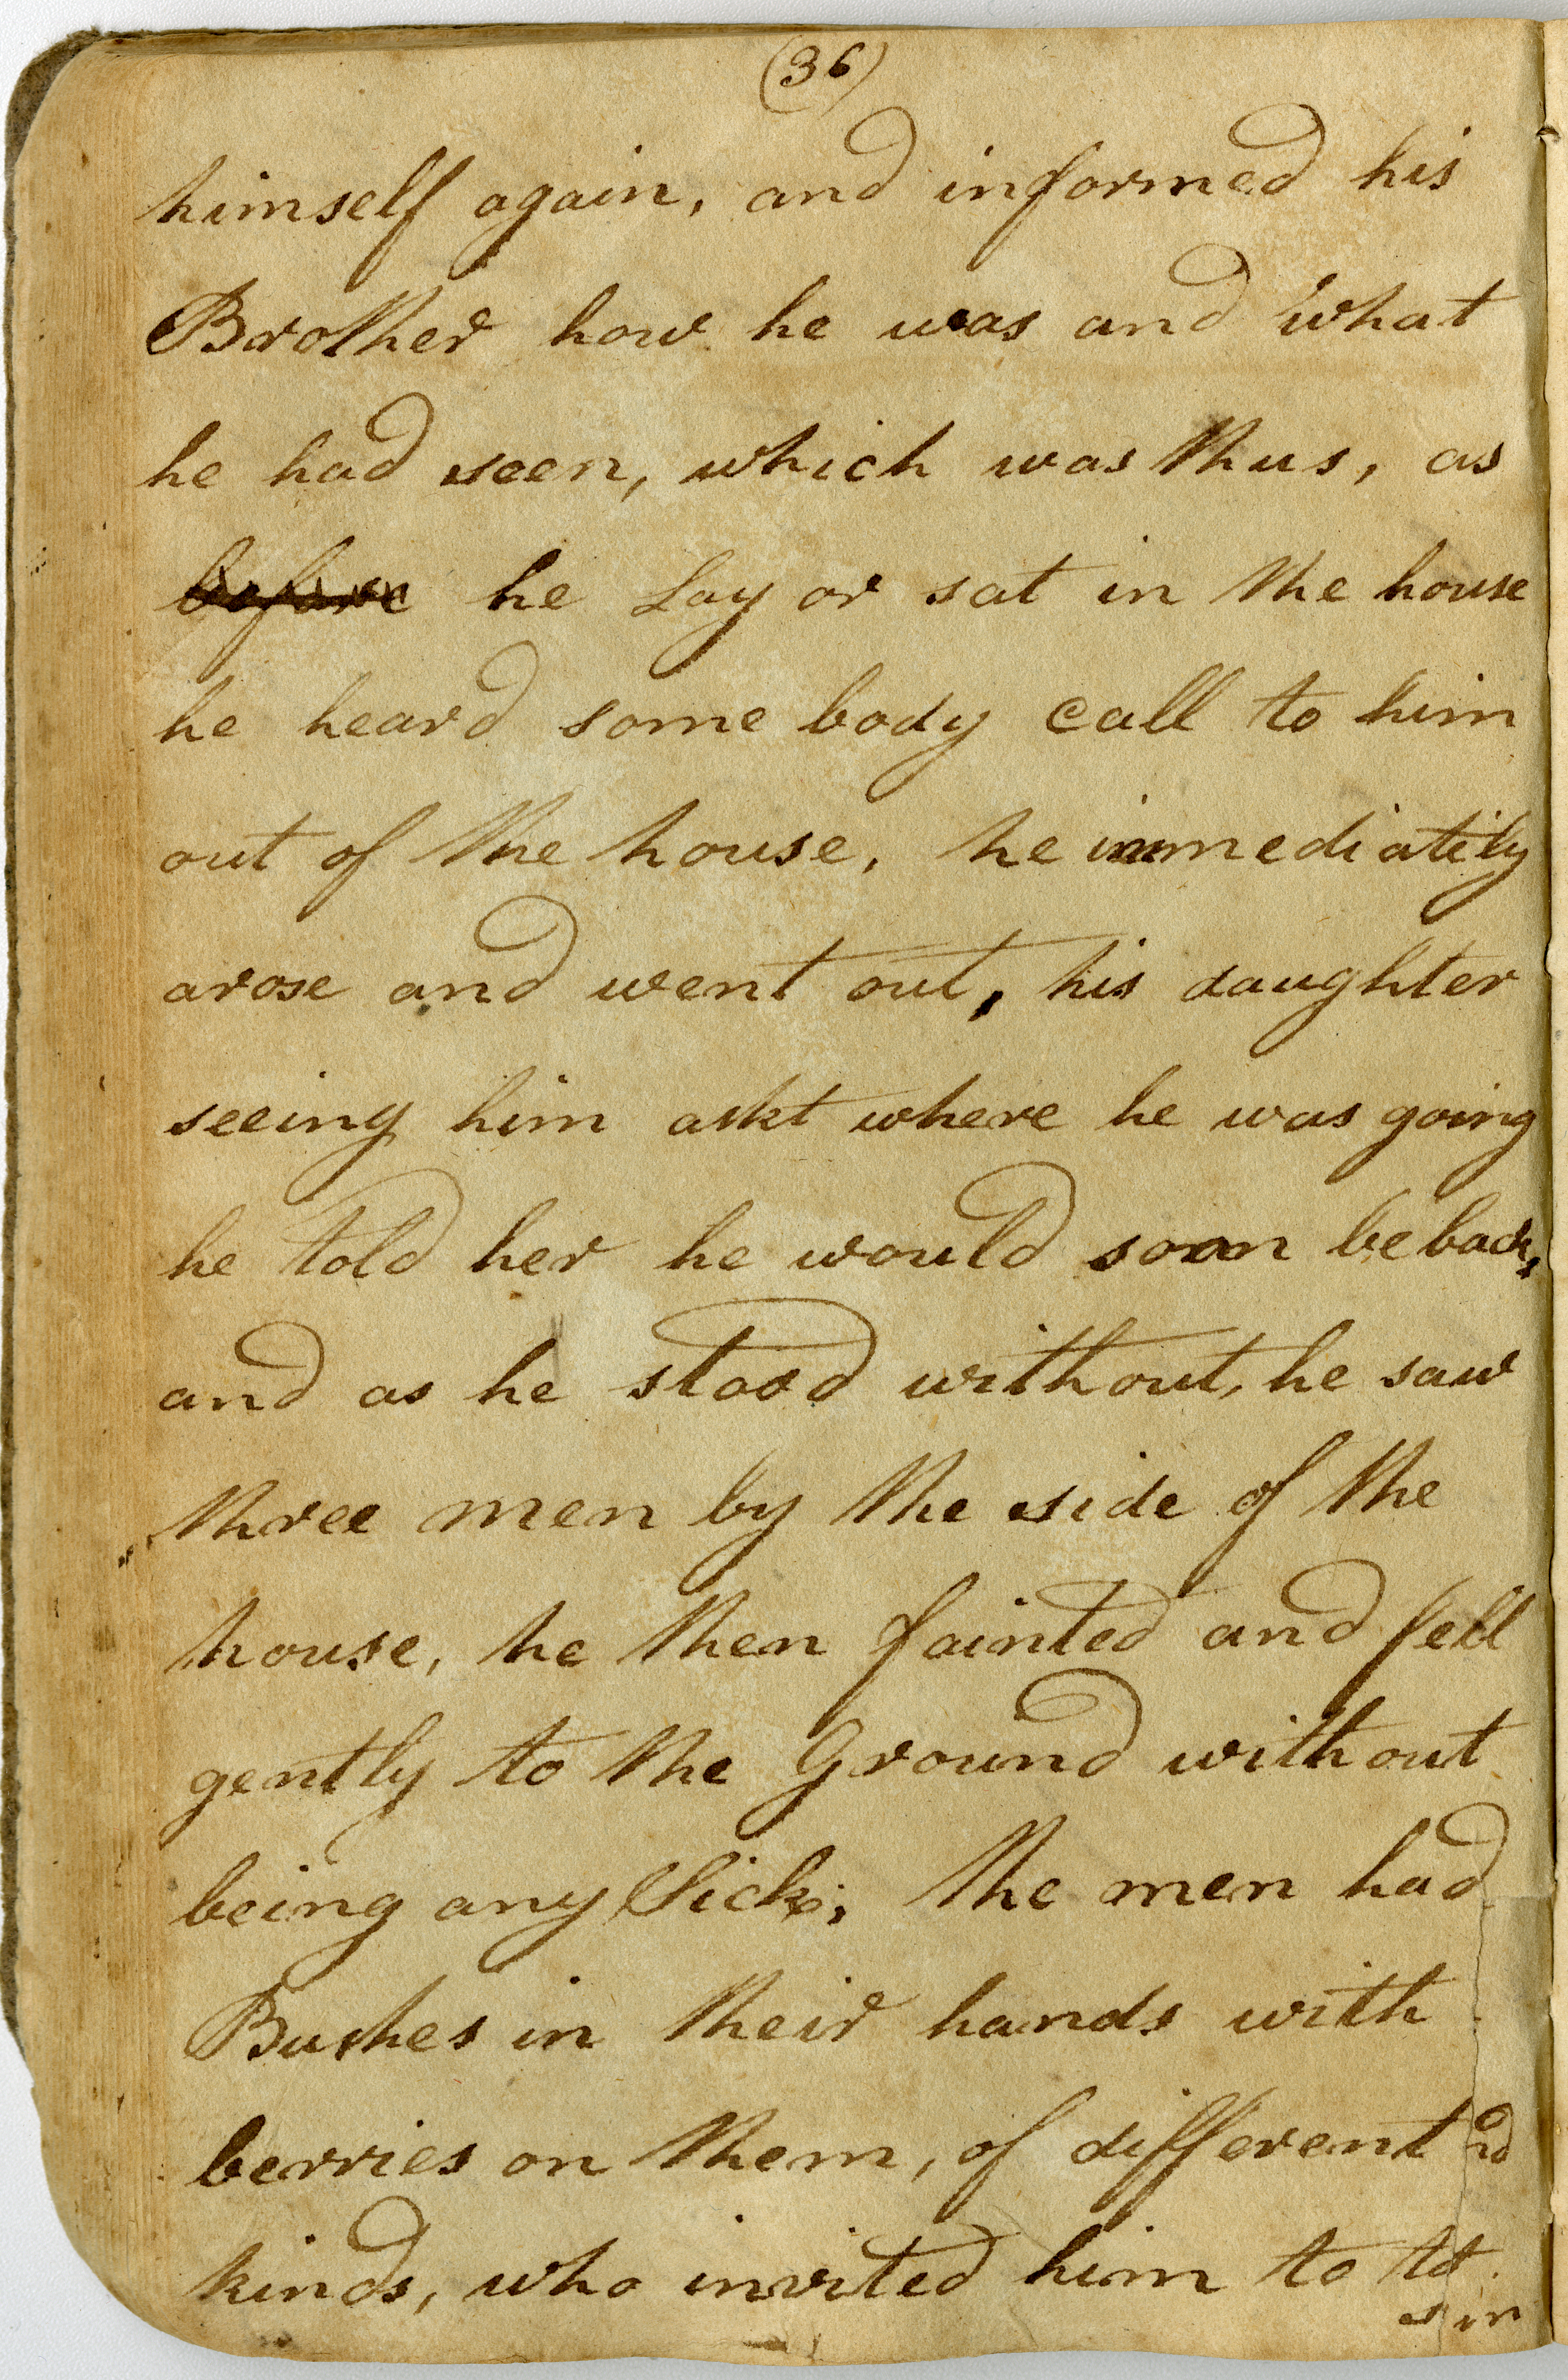 (36)
himself again, and informed his
Brother how he was and what
he had seen, which was thus, as
before he Lay or sat in the house
he heard some body call to him
out of the house, he immediatily
arose and went out, his daughter
seeing him askt where he was going
he told her he would soon be back,
and as he stood without, he saw
three men by the side of the
house, he then fainted and fell
gently to the Ground without
being any Sick, the men had
Bushes in their hands with
berries on them, of different
kinds, who invited him to